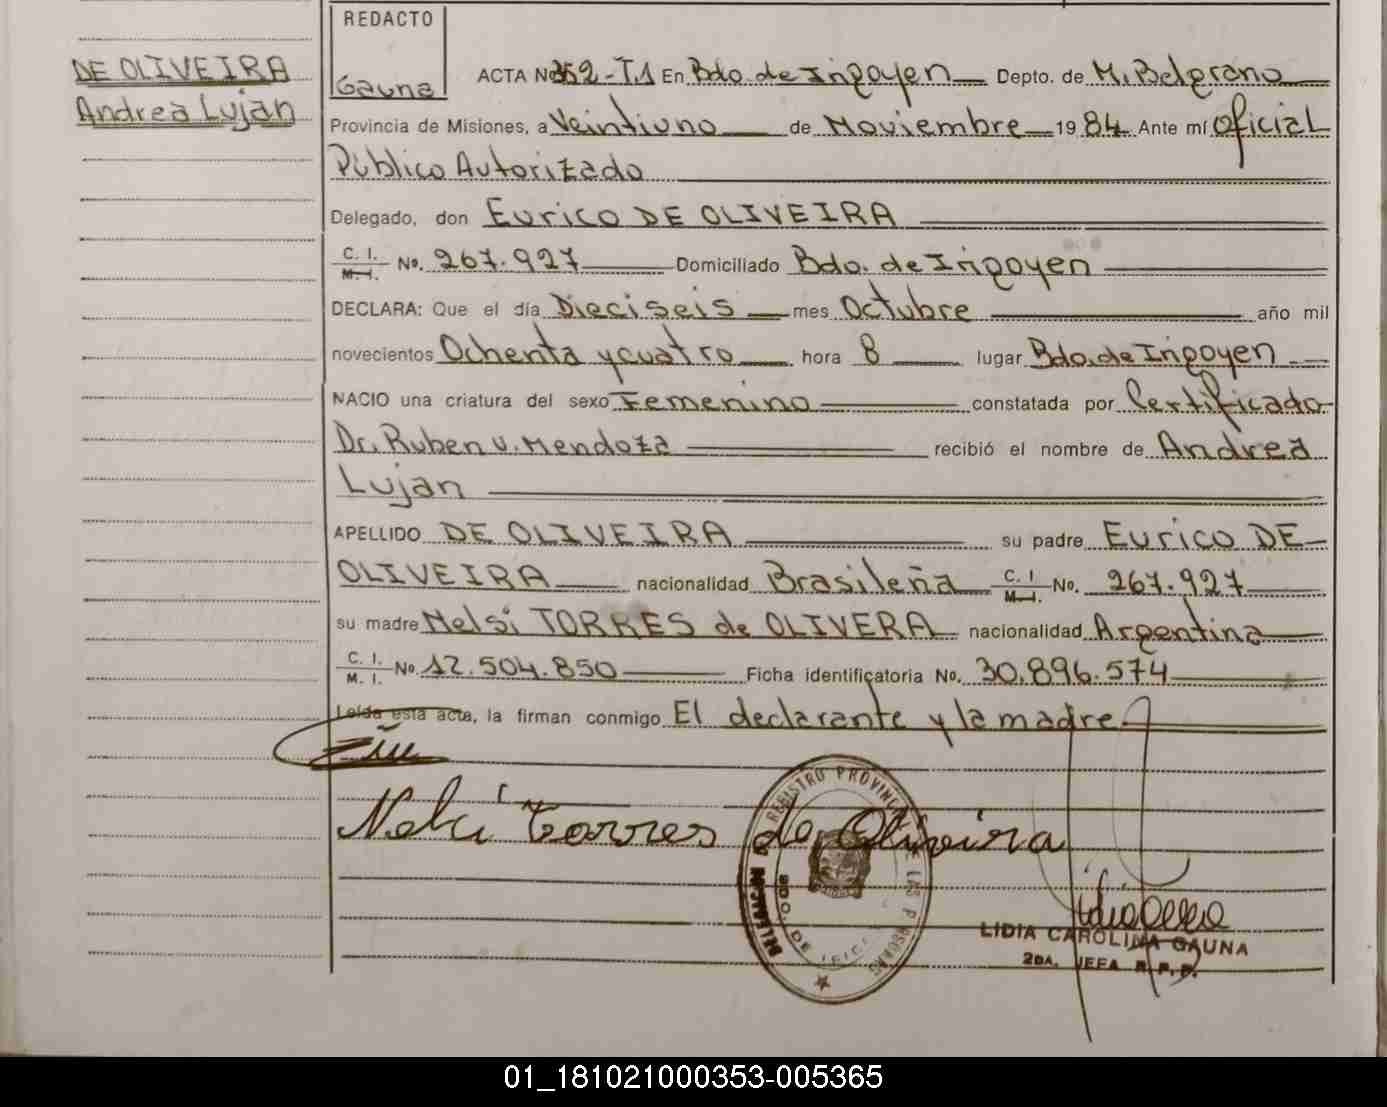 DE OLIVEIRA
Andrea Lujan
REDACTO
Gauna
ACTA Nº 352-T1 En Bdo. de Irigoyen Depto. de M. Belgrano
Provincia de Misiones, a Veintiuno de Noviembre 1984 Ante mí Oficial
Público Autorizado
Delegado, don Eurico DE OLIVEIRA
C. I. M. I. No. 267.927 Domiciliado Bdo. de Irigoyen
DECLARA: Que el día Dieciseis mes Octubre año mil
novecientos Ochenta y cuatro hora 8 lugar Bdo. de Irigoyen
NACIO una criatura del sexo Femenino constatada por Certificado
Dr. Ruben V. Mendoza recibió el nombre de Andrea
Lujan
APELLIDO DE OLIVEIRA su padre Eurico DE
OLIVEIRA nacionalidad Brasileña C. I. M. I. No. 267.927
su madre Nelsi TORRES de OLIVERA nacionalidad Argentina
C. I. M. I. No. 12.504.850 Ficha identificatoria No. 30.896.574
Leída esta acta, la firman conmigo El declarante y la madre
Nelci Torres de Oliveira
REGISTRO PROVINCIAL DE LAS PERSONAS
BDO. DE
LIDIA CAROLINA GAUNA
2DA. JEFA R. P. P.
01_181021000353-005365